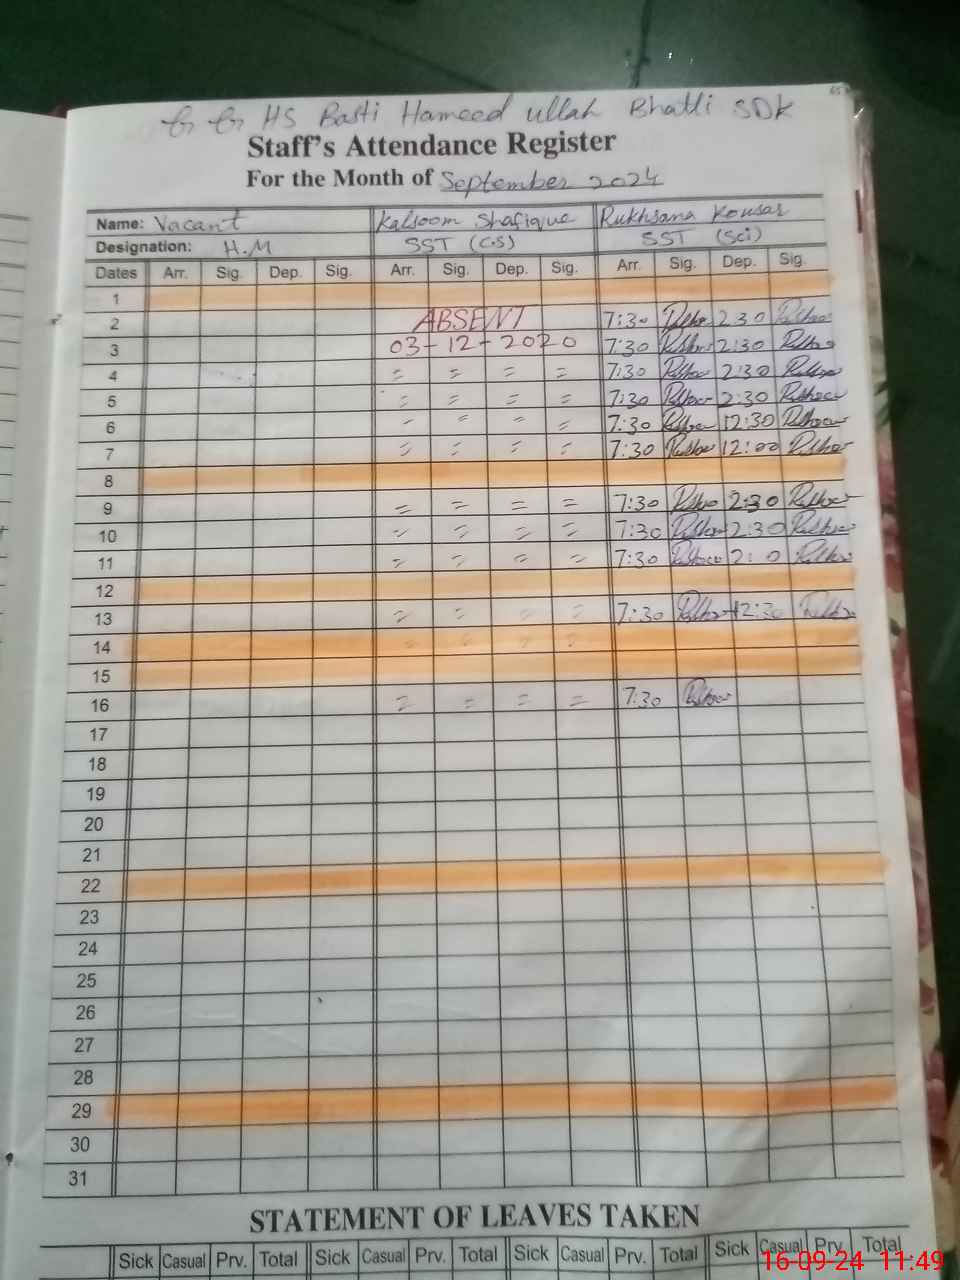 HS Basti Hameed ullah Bhatti SDK
Staff's Attendance Register
For the Month of September 2024
Name: Vacant Kalsoom Shafique Rukhsana Kousar
Designation: H.M SST (C.S) SST (Sci)
Dates Arr. Sig. Dep. Sig. Arr. Sig. Dep. Sig. Arr. Sig. Dep. Sig.
1
2 ABSENT 7:30 2 30
3 03-12-2020 7:30 2:30
4 = = = = 7:30 2:30
5 = = = = 7:30 2:30
6 = = = = 7:30 12:30
7 = = = = 7:30 12:00
8
9 = = = = 7:30 2:30
10 = = = = 7:30 2:30
11 = = = = 7:30
12
13 = = = = 7:30 12:30
14 = = = =
15
16 = = = = 7:30
17
18
19
20
21
22
23
24
25
26
27
28
29
30
31
STATEMENT OF LEAVES TAKEN
Sick Casual Prv. Total Sick Casual Prv. Total Sick Casual Prv. Total Sick Casual Prv. Total
16-09-24 11:49